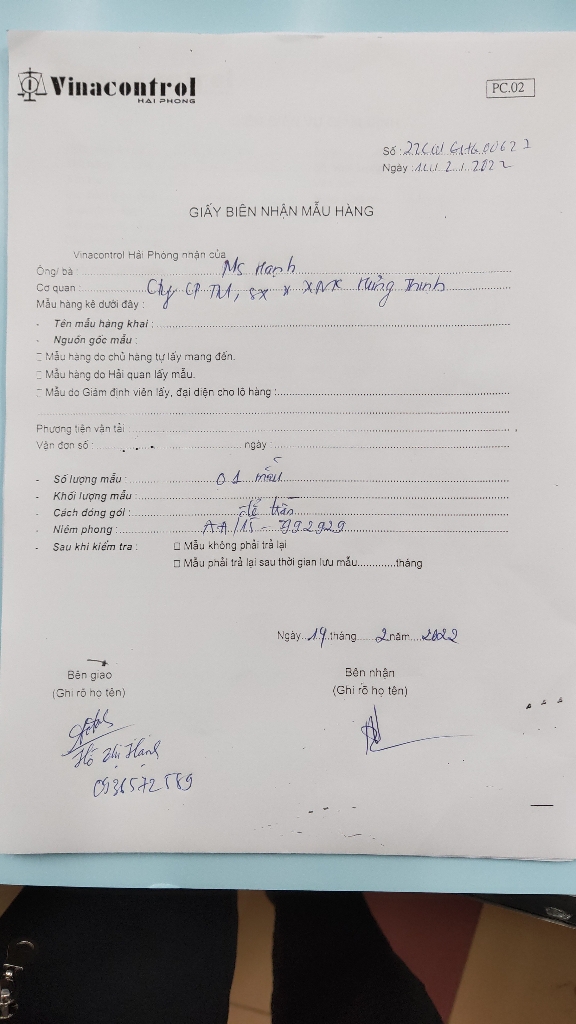 Vinacontrol
HAI PHONG
PC.02
Số :
Ngày : 2022
GIẤY BIÊN NHẬN MẪU HÀNG
Vinacontrol Hải Phòng nhận của
Ông/ bà : Ms Hạnh
Cơ quan : Cty CP TM, SX & XNK Hưng Thịnh
Mẫu hàng kê dưới đây :
- Tên mẫu hàng khai :
- Nguồn gốc mẫu :
□ Mẫu hàng do chủ hàng tự lấy mang đến.
□ Mẫu hàng do Hải quan lấy mẫu.
□ Mẫu do Giám định viên lấy, đại diện cho lô hàng :
Phương tiện vận tải :
Vận đơn số : ngày :
- Số lượng mẫu : 01 mẫu
- Khối lượng mẫu :
- Cách đóng gói : để trần
- Niêm phong : AA/15 - 792929
- Sau khi kiểm tra : □ Mẫu không phải trả lại
□ Mẫu phải trả lại sau thời gian lưu mẫu............tháng
Ngày 19 tháng 2 năm 2022
Bên giao Bên nhận
(Ghi rõ họ tên) (Ghi rõ họ tên)
Hồ Thị Hạnh
0936572589